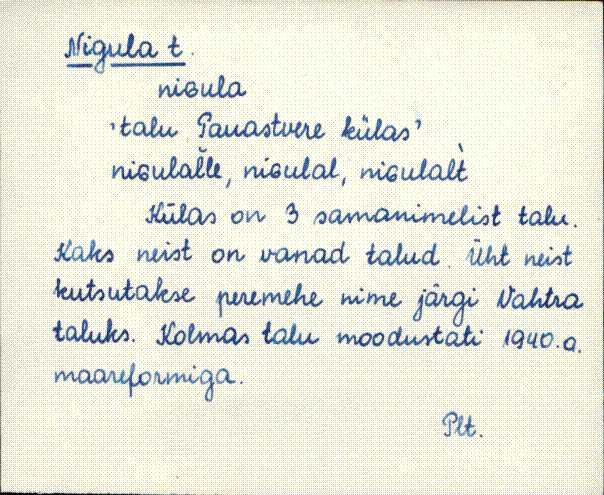 Nigula t.
niɢula
'talu Pauastvere külas'
niɢulal̆le, niɢulal, niɢulal̀t
Külas on 3 samanimelist talu.
Kaks neist on vanad talud. Üht neist
kutsutakse peremehe nime järgi Vahtra
taluks. Kolmas talu moodustati 1940. a.
maareformiga.
Plt.